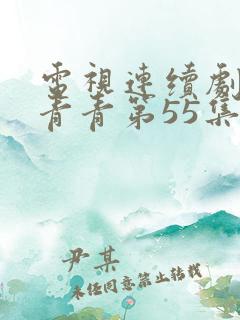 電視連續劇
青青第55集
尹某
未經同意禁止轉載